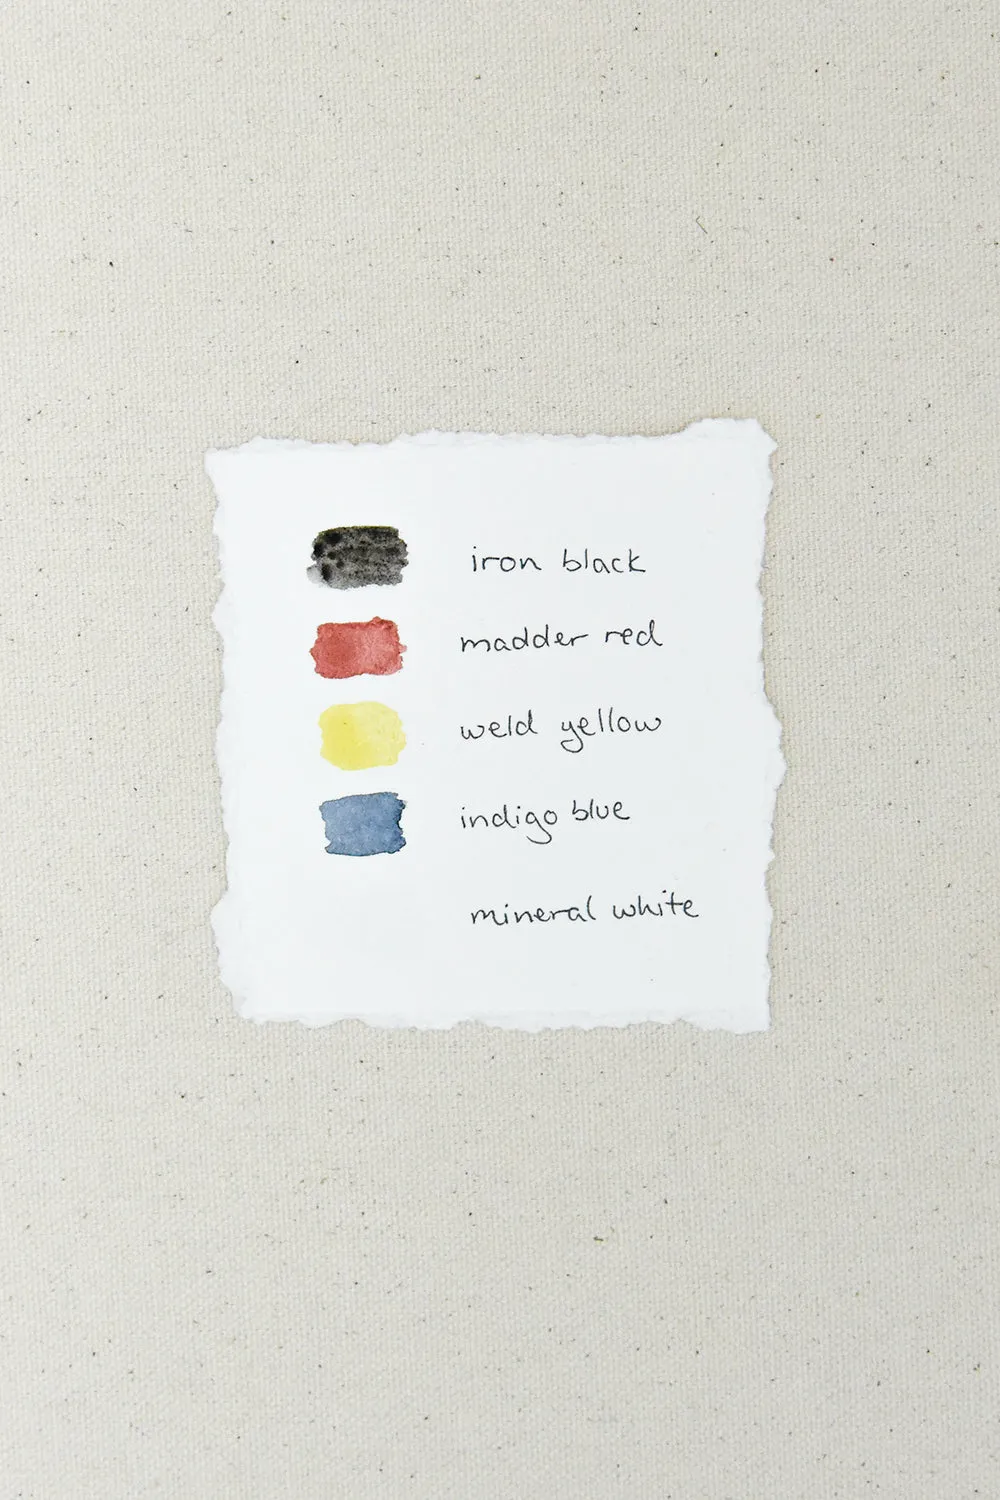 iron black
madder red
weld yellow
indigo blue
mineral white